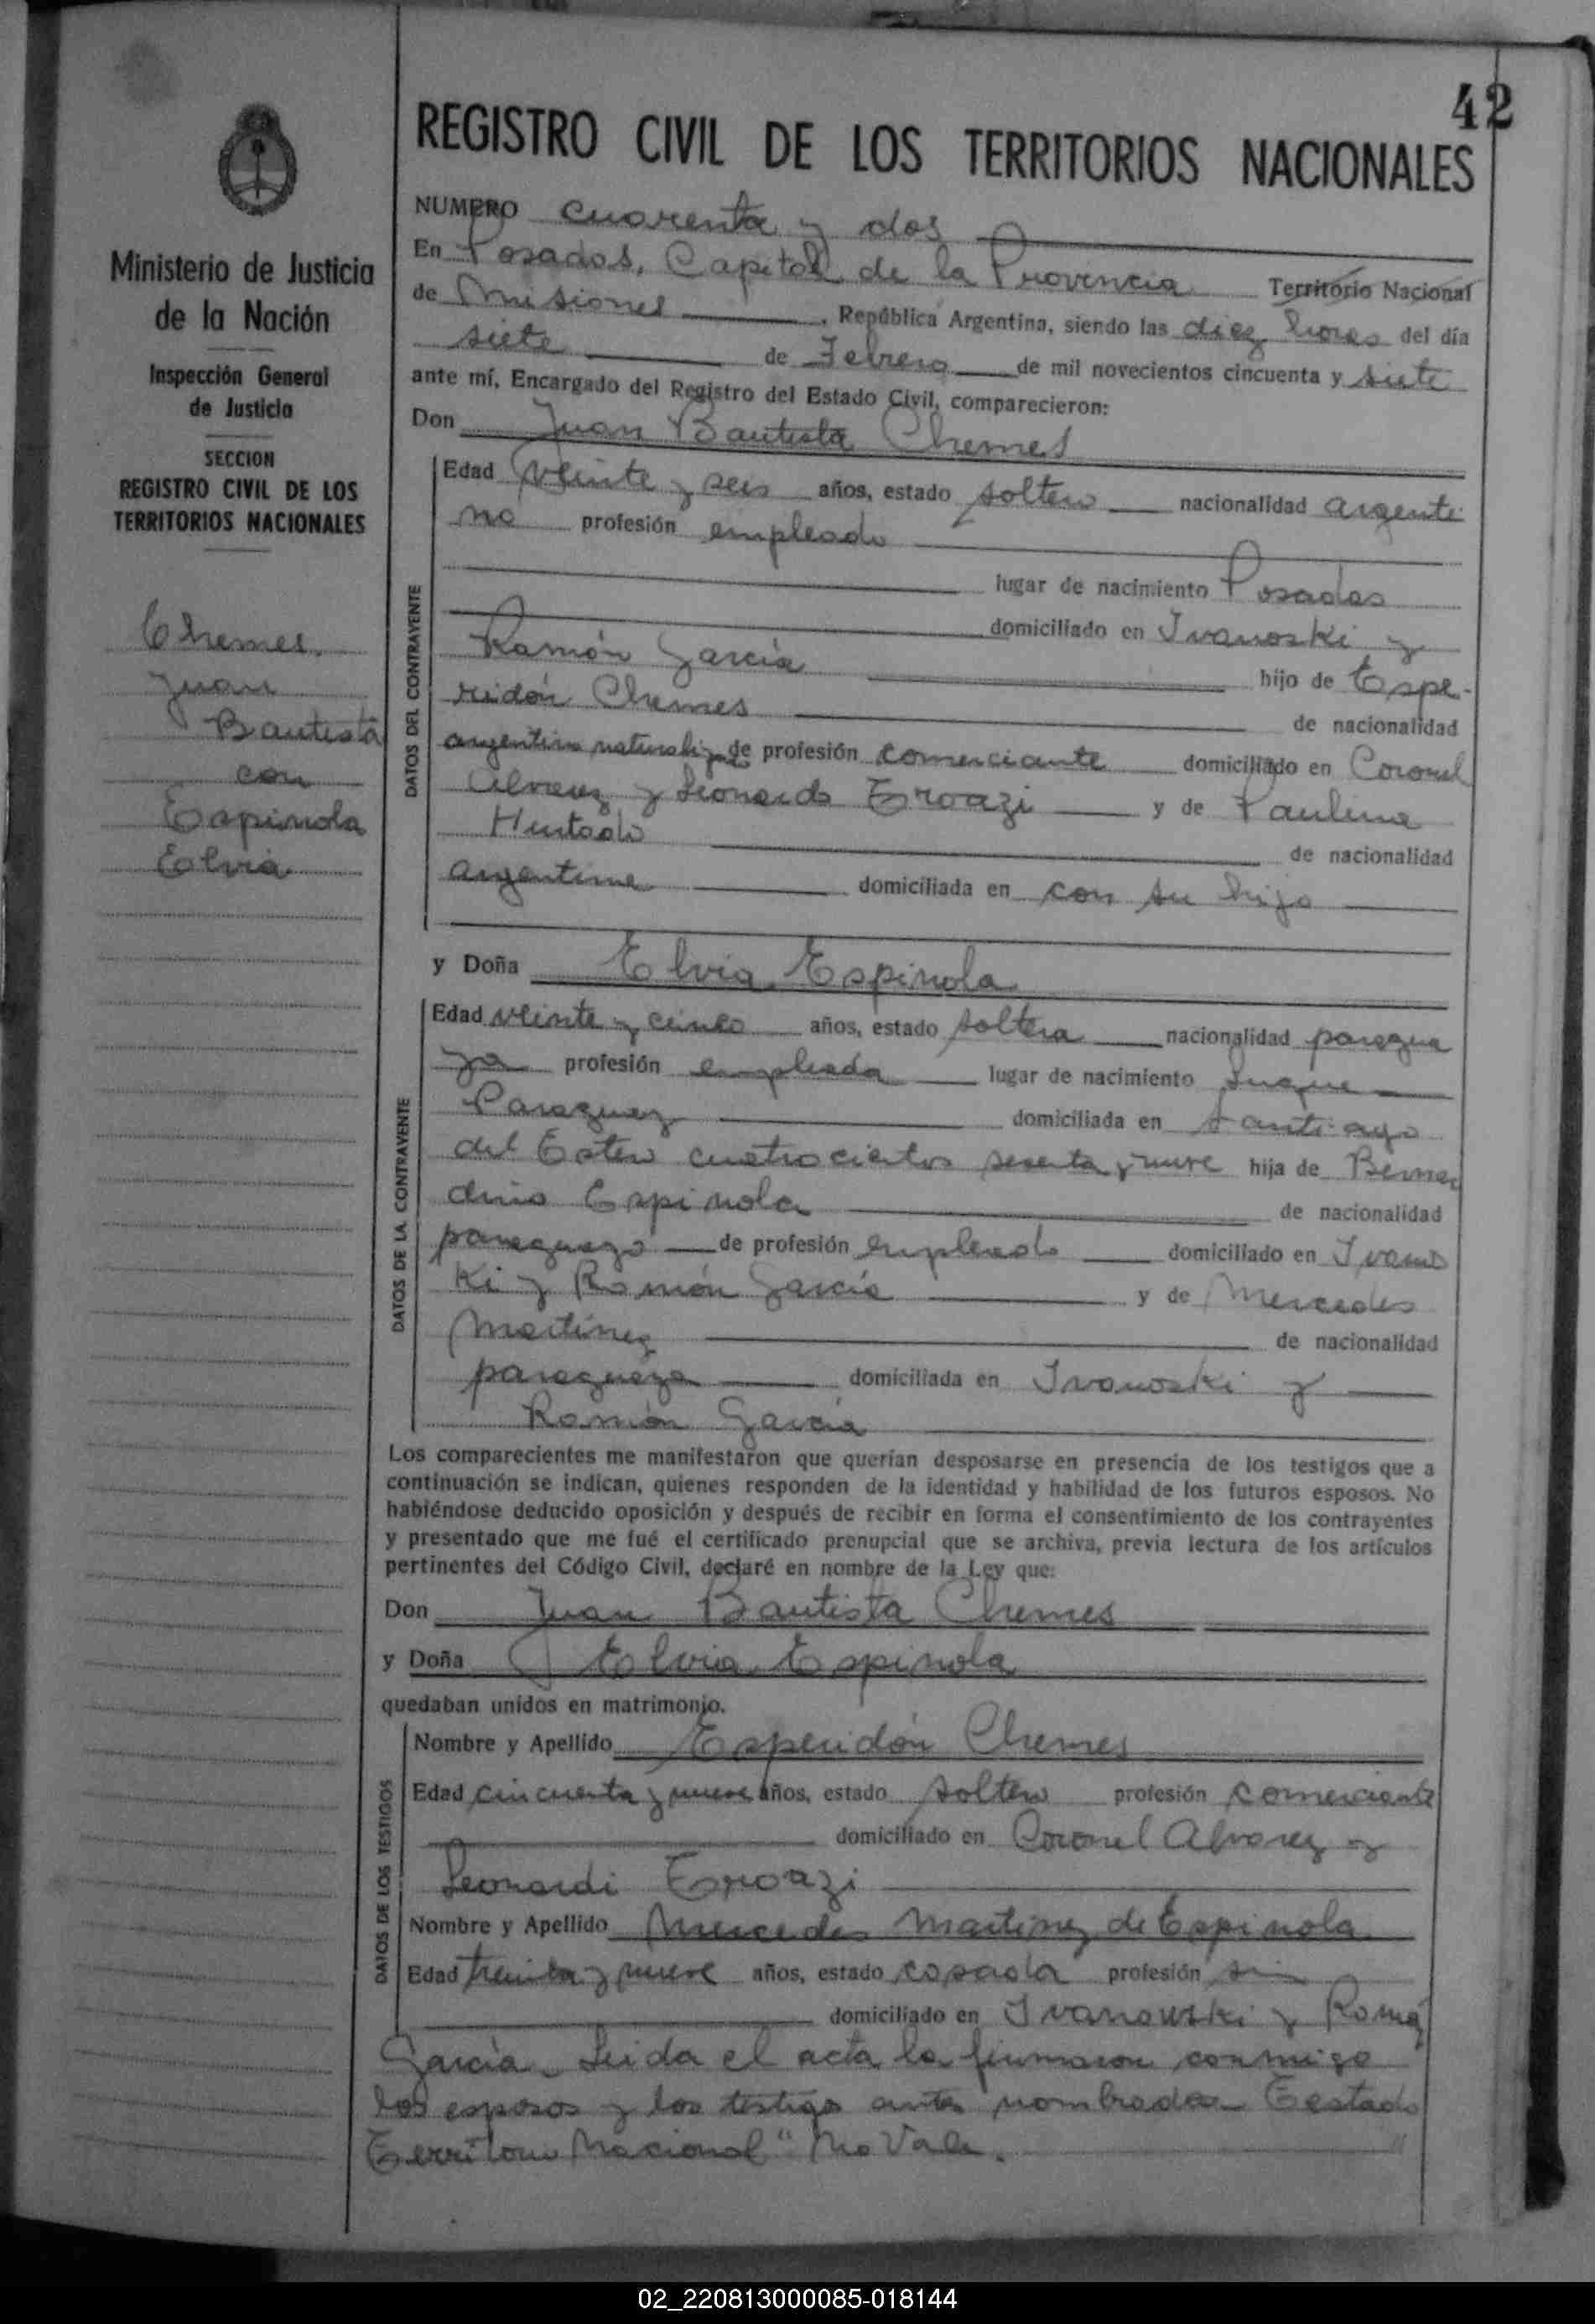 42
REGISTRO CIVIL DE LOS TERRITORIOS NACIONALES
Ministerio de Justicia
de la Nación
Inspección General
de Justicia
SECCION
REGISTRO CIVIL DE LOS
TERRITORIOS NACIONALES
Chemes,
Juan
Bautista
con
Espinola
Elvia
NUMERO cuarenta y dos
En Posadas, Capital de la Provincia Territorio Nacional
de Misiones, República Argentina, siendo las diez horas del día
siete de Febrero de mil novecientos cincuenta y siete
ante mí, Encargado del Registro del Estado Civil, comparecieron:
Don Juan Bautista Chemes
DATOS DEL CONTRAYENTE
Edad veinte y seis años, estado soltero nacionalidad argenti
no profesión empleado
lugar de nacimiento Posadas
domiciliado en Ivanoski y
Ramón García hijo de Espe-
ridón Chemes de nacionalidad
argentino naturaliz de profesión comerciante domiciliado en Coronel
Alvarez y Leonardo Troazi y de Paulina
Hurtado de nacionalidad
argentina domiciliada en con su hijo
y Doña Elvia Espinola
DATOS DE LA CONTRAYENTE
Edad veinte y cinco años, estado soltera nacionalidad paragua
ya profesión empleada lugar de nacimiento Luque
Paraguay domiciliada en Santiago
del Estero cuatrocientos sesenta y nueve hija de Bernar
dino Espinola de nacionalidad
paraguayo de profesión empleado domiciliado en Ivanos
Ki y Ramón García y de Mercedes
Martínez de nacionalidad
paraguaya domiciliada en Ivanoski y
Ramón García
Los comparecientes me manifestaron que querían desposarse en presencia de los testigos que a
continuación se indican, quienes responden de la identidad y habilidad de los futuros esposos. No
habiéndose deducido oposición y después de recibir en forma el consentimiento de los contrayentes
y presentado que me fué el certificado prenupcial que se archiva, previa lectura de los artículos
pertinentes del Código Civil, declaré en nombre de la Ley que:
Don Juan Bautista Chemes
y Doña Elvia Espinola
quedaban unidos en matrimonio.
DATOS DE LOS TESTIGOS
Nombre y Apellido Esperidón Chemes
Edad cincuenta y nueve años, estado soltero profesión comerciante
domiciliado en Coronel Alvarez y
Leonardi Troazi
Nombre y Apellido Mercedes Martinez de Espinola
Edad treinta y nueve años, estado casada profesión sin
domiciliado en Ivanowski y Ramón
García. Leida el acta la firmaron conmigo
los esposos y los testigos antes nombrados. Testado
Territorio Nacional" No Vale.
02_220813000085-018144